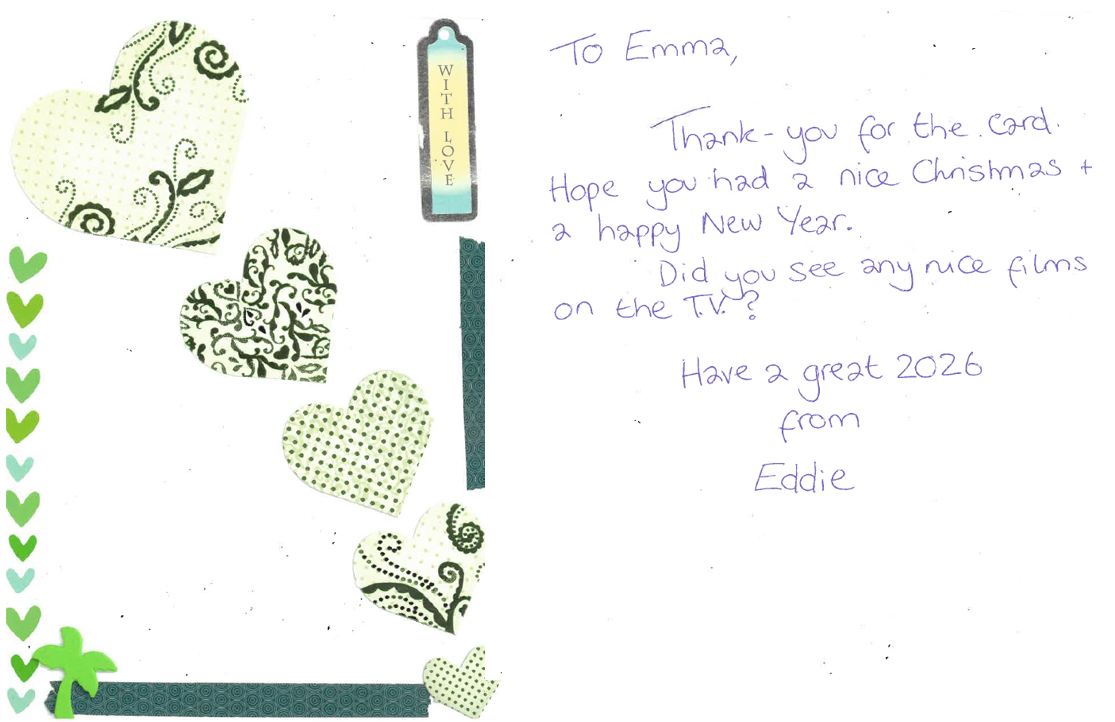 WITH LOVE
To Emma,
Thank-you for the card.
Hope you had a nice Christmas +
a happy New Year.
Did you see any nice films
on the T.V.?
Have a great 2026
from
Eddie